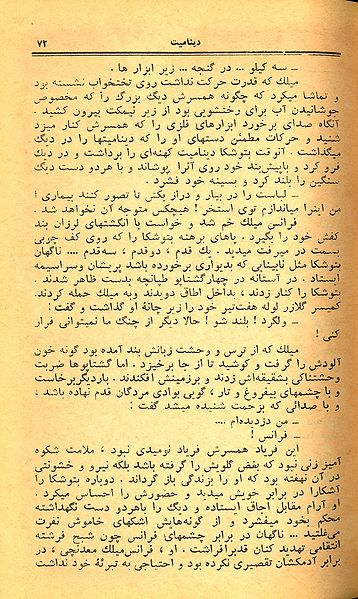 دینامیت ۷۲
ـ سه کیلو ... در گنجه ... زیر ابزار ها .
میلك که قدرت حرکت نداشت روی تختخواب نشسته بود
و تماشا میکرد که چگونه همسرش دیگ بزرگ را که مخصوص
جوشانیدن آب برای رختشویی بود از زیر نیمکت بیرون کشید .
آنگاه صدای برخورد ابزارهای فلزی را که همسرش کنار میزد
شنید و حرکات مطمئن دستهای او را که دینامیتها را در دیگ
میگذاشت . آنوقت بتوشکا دینامیت کهنه‌ای را برداشت و در دیك
فرو کرد و باپیش‌بند خود روی آنرا پوشاند و با هردو دست دیگ
سنگین را بلند کرد و بسینه خود فشرد .
ـ لباست را در بیار و دراز بکش تا تصور کنند بیماری !
من اینرا میاندازم توی استخر ! هیچکس متوجه آن نخواهد شد .
فرانس میلك خم شد و خواست با انگشتهای لرزان بند
کفش خود را بگیرد . پاهای برهنه بتوشکا را که روی کف چوبی
بسمت در میرفت میدید . یك قدم ، دوقدم ، سه‌قدم .... ناگهان
بتوشکا مثل نابینایی که بدیواری برخورده باشد پریشان وسراسیمه
ایستاد . در آستانه در چهارگشتاپو طپانچه بدست ظاهر شدند .
بتوشکا را کنار زدند ، بداخل اطاق دویدند وبه میلك حمله کردند.
کمیسر گلازر لوله هفت‌تیر خود را زیر چانهٔ او گذاشت و گفت :
ـ ولگرد ! بلند شو ! حالا دیگر از چنگ ما نمیتوانی فرار
کنی !
میلك که از ترس و وحشت زبانش بند آمده بود گونه خون
آلودش را گرفت و کوشید تا از جا برخیزد . اما گشتاپوها ضربت
وحشتناکی بشقیقه‌اش زدند و برزمینش افکندند . باردیگربرخاست
و با چشمهای بیفروغ و تار ، گویی بوادی مردگان قدم نهاده باشد ،
و با صدائی که بزحمت شنیده میشد گفت :
ـ من دزدیده‌ام ....
ـ فرانس !
این فریاد همسرش فریاد نومیدی نبود ، ملامت شکوه
آمیز زنی نبود که بغض گلویش را گرفته باشد بلکه نیرو و خشونتی
در آن نهفته بود که او را بزندگی باز گرداند . دوباره بتوشکا را
آشکارا در برابر خویش میدید و حضورش را احساس میکرد .
او آرام مقابل اجاق ایستاده و دیگ را باهردو دست نگهداشته
محکم بخود میفشرد و از گونه‌هایش اشکهای خاموش نفرت
می‌غلتید ... ناگهان در برابر چشمهای فرانس چون شبح فرشته
انتقامی تهدید کنان قدبرافراشت . او ، فرانس‌میلك معدنچی ، در
برابر آدمکشان تقصیری نکرده بود و احتیاجی به تبرئهٔ خود نداشت